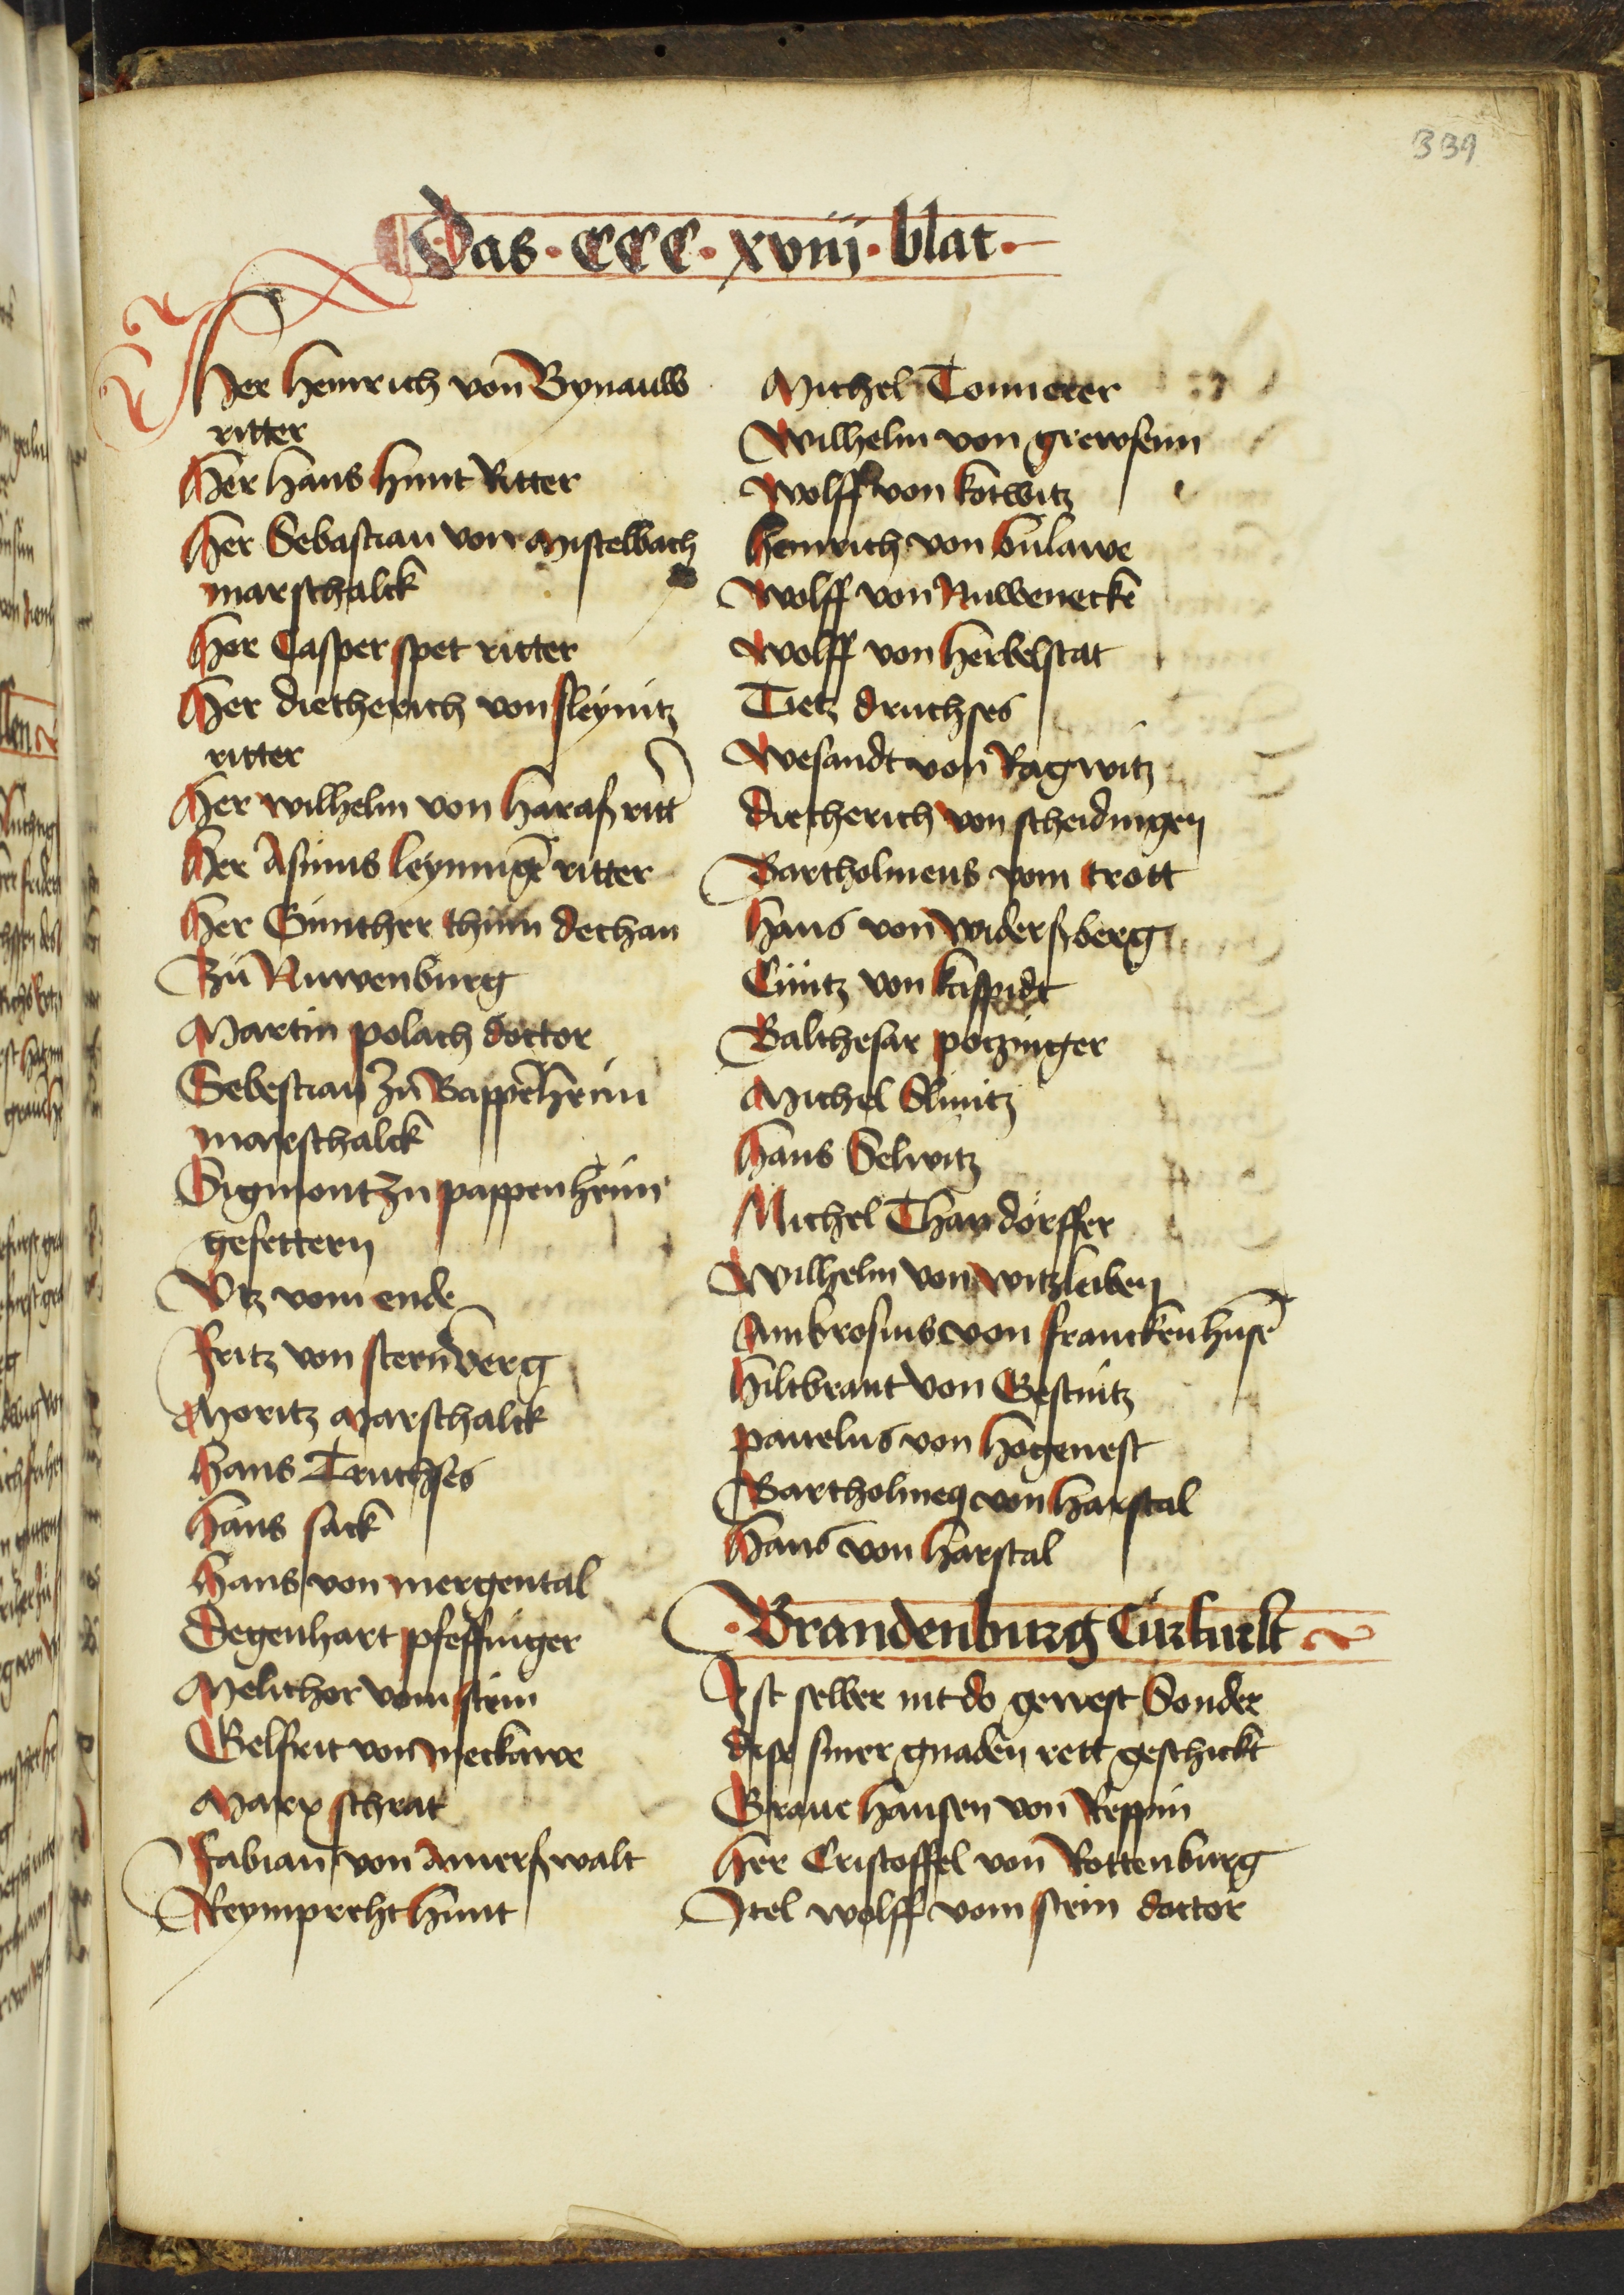 339
Das · CCC · xviij · blat ·
Her Heinrich von Bynauw
ritter
Her Hans Hunt Ritter
Her Sebastian von Mistelbach
marschalck
Her Casper spet ritter
Her dietherich von sleynitz
ritter
Her wilhelm von Haraß ritt
Her Asimus leymig ritter
Her Günther thüm dechan
Zü Nuwenbürg
Martin polach doctor
Sebestian zu Bappeheim
marschalck
Sigmont zu pappenheim
gefettern
Utz vom ende
Fritz von sternberg
Moritz Marschalck
Hans Truchses
Hans sack
Hans von mergental
Degenhart pfeffinger
Melichor vom stein
Gelfrit von meckawe
Marx schrat
Fabian von Amerßwalt
Reymprecht Hunt
Michel Tonnerer
Wilhelm von grewsenn
Wolff von kotwitz
Heinrich von bulawe
Wolff von Nuwenecke
Wolff von Herbelstat
Tietz druchses
Wesandt von Ragwitz
Dietherich von scheidingen
Bartholmeus vom trott
Hans von widerßberg
Cüntz von kaspidt
Balthesar potzinger
Michel Slinitz
Hans Selwitz
Michel Thandorffer
Wilhelm von witzleiben
Ambrosius von franckenhuse
Hiltbrant von Gestnitz
pauelus von Hogenest
Bartholmeg von Harstal
Hans von Harstal
· Brandenburg Curfurst
Ist selber nit do gewest Sonder
dise siner gnaden rett geschickt
Graue Hansen von Reppin
Her Cristoffel von Rottenburg
Itel wolff vom stein doctor